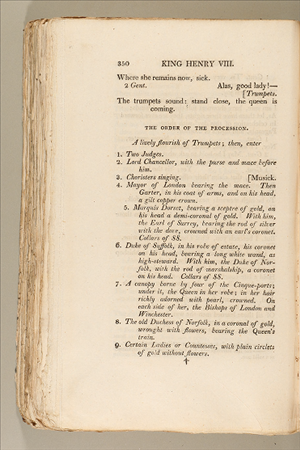 350 KING HENRY VIII.
Where she remains now, sick.
2 Gent. Alas, good lady!—
[Trumpets.
The trumpets sound: stand close, the queen is
coming.
THE ORDER OF THE PROCESSION.
A lively flourish of Trumpets; then, enter
1. Two Judges.
2. Lord Chancellor, with the purse and mace before
him.
3. Choristers singing. [Musick.
4. Mayor of London bearing the mace. Then
Garter, in his coat of arms, and on his head,
a gilt copper crown.
5. Marquis Dorset, bearing a sceptre of gold, on
his head a demi-coronal of gold. With him,
the Earl of Surrey, bearing the rod of silver
with the dove, crowned with an earl's coronet.
Collars of SS.
6. Duke of Suffolk, in his robe of estate, his coronet
on his head, bearing a long white wand, as
high-steward. With him, the Duke of Nor-
folk, with the rod of marshalship, a coronet
on his head. Collars of SS.
7. A canopy borne by four of the Cinque-ports;
under it, the Queen in her robe; in her hair
richly adorned with pearl, crowned. On
each side of her, the Bishops of London and
Winchester.
8. The old Duchess of Norfolk, in a coronal of gold,
wrought with flowers, bearing the Queen's
train.
9. Certain Ladies or Countesses, with plain circlets
of gold without flowers.